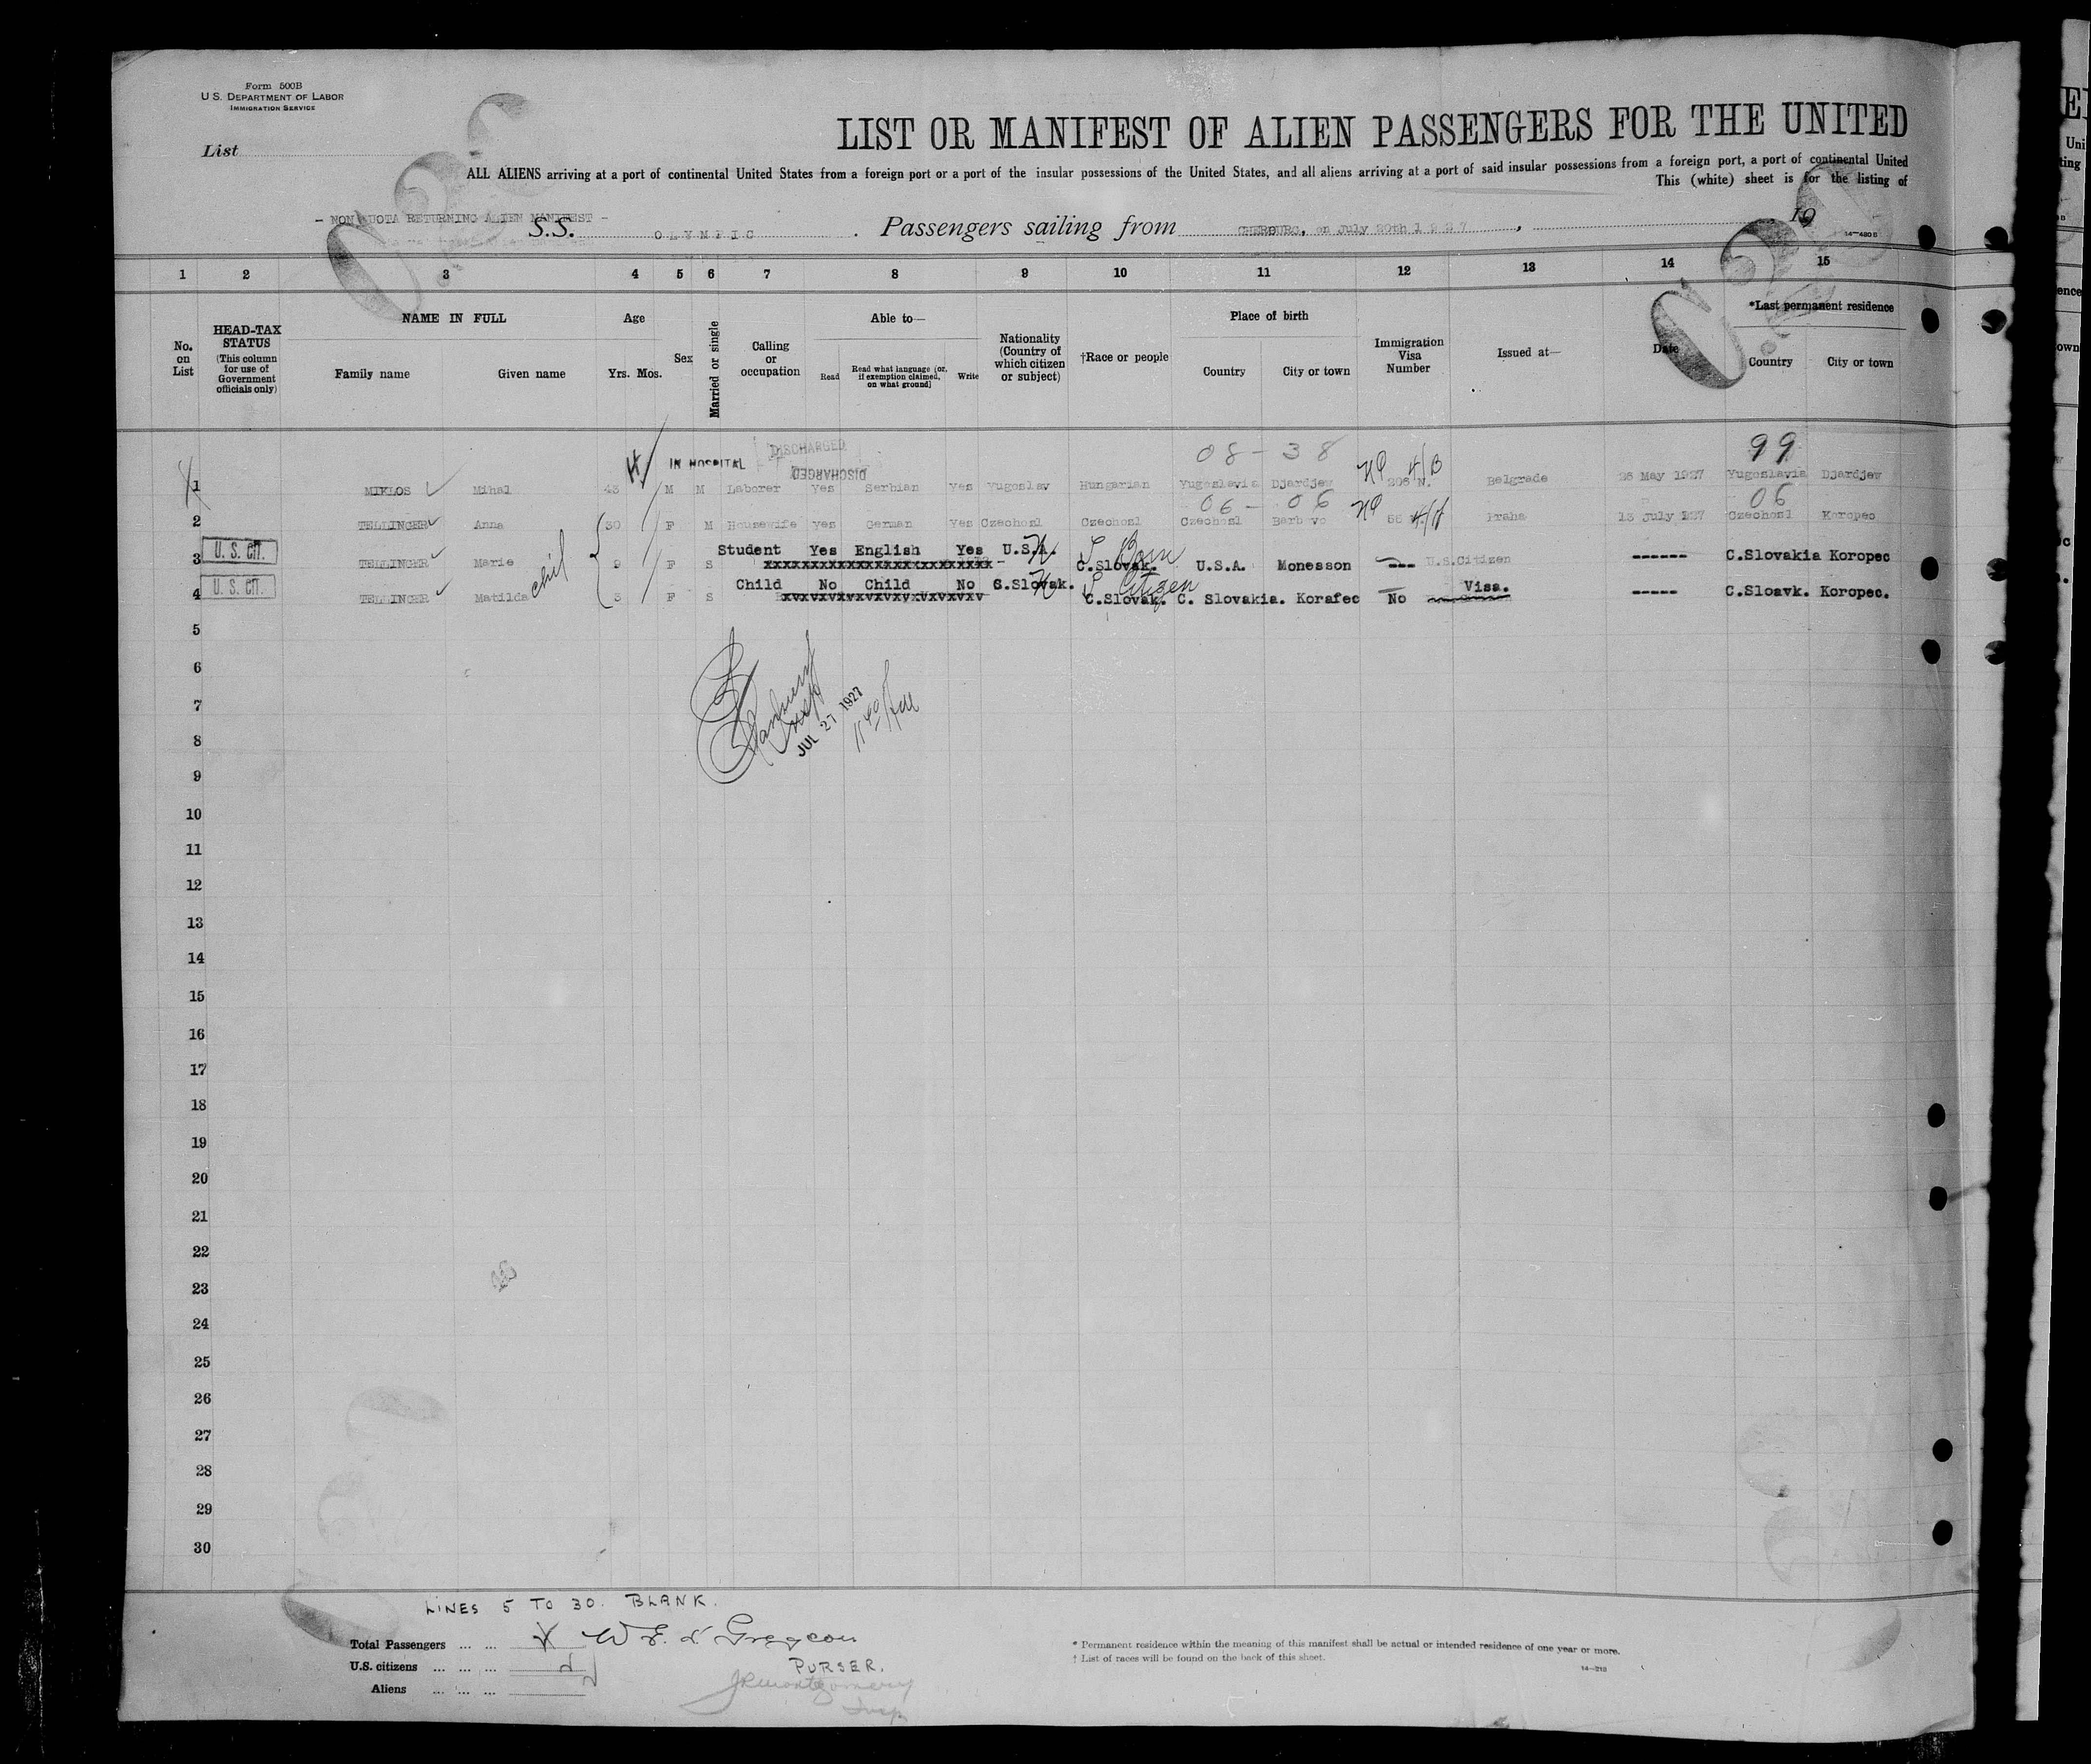 Form 500B
U. S. DEPARTMENT OF LABOR
IMMIGRATION SERVICE
List
LIST OR MANIFEST OF ALIEN PASSENGERS FOR THE UNITED
ALL ALIENS arriving at a port of continental United States from a foreign port or a port of the insular possessions of the United States, and all aliens arriving at a port of said insular possessions from a foreign port, a port of continental United
This (white) sheet is for the listing of
- NON QUOTA RETURNING ALIEN MANIFEST -
S.S. OLYMPIC . Passengers sailing from CHERBURG, on July 20th 1927 , 19
14-480 B
1 2 3 4 5 6 7 8 9 10 11 12 13 14 15
No. on List
HEAD-TAX STATUS
(This column for use of Government officials only)
NAME IN FULL
Family name Given name
Age
Yrs. Mos.
Sex
Married or single
Calling or occupation
Able to—
Read Read what language (or, if exemption claimed, on what ground) Write
Nationality (Country of which citizen or subject)
†Race or people
Place of birth
Country City or town
Immigration Visa Number
Issued at—
Date
*Last permanent residence
Country City or town
IN HOSPITAL DISCHARGED 08-38 99
DISCHARGED
1 MIKLOS Mihal 43 M M Laborer Yes Serbian Yes Yugoslav Hungarian Yugoslavia Djardjew 206 N. Belgrade 26 May 1927 Yugoslavia Djardjew
06 - 06 06
2 TELLINGER Anna 30 F M Housewife yes German Yes Czechosl Czechosl Czechosl Praha 13 July 27 Czechosl Koropec
U. S. CIT.
Student Yes English Yes U.S.A. Born
3 TELLINGER Marie 9 F S C.Slovak. U.S.A. Monesson ---- U.S.Citizen ------ C.Slovakia Koropec
chil
U. S. CIT.
Child No Child No C.Slovak. Citizen
4 TELLINGER Matilda 3 F S C.Slovak. C. Slovakia. Korafec No Visa. ----- C.Sloavk. Koropec.
5
6
7
JUL 27 1927
8
9
10
11
12
13
14
15
16
17
18
19
20
21
22
23
24
25
26
27
28
29
30
LINES 5 TO 30. BLANK.
Total Passengers
U.S. citizens
PURSER.
Aliens
JRMontgomery
Insp
* Permanent residence within the meaning of this manifest shall be actual or intended residence of one year or more.
† List of races will be found on the back of this sheet.
14-213